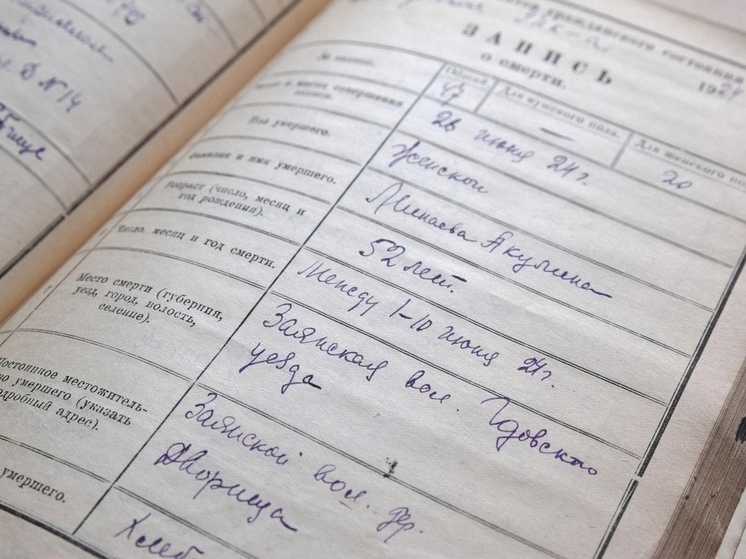 № 14
гражданского состояния
ЗАПИСЬ
о смерти.
№ записи.
Общий
Для мужского пола.
Для женского по
47
—
20
и место совершения записи.
26 июня 24 г.
Пол умершего.
Женской
Фамилия и имя умершего.
Минаева Акулина
Возраст (число, месяц и
год рождения).
52 лет.
Число, месяц и год смерти.
Между 1-10 июня 24 г.
Место смерти (губерния,
уезд, город, волость,
селение).
Заянская вол. Гдовского
уезда
Постоянное местожитель-
во умершего (указать
подробный адрес).
Заянской вол. дер.
Дворища
умершего.
Хлеб